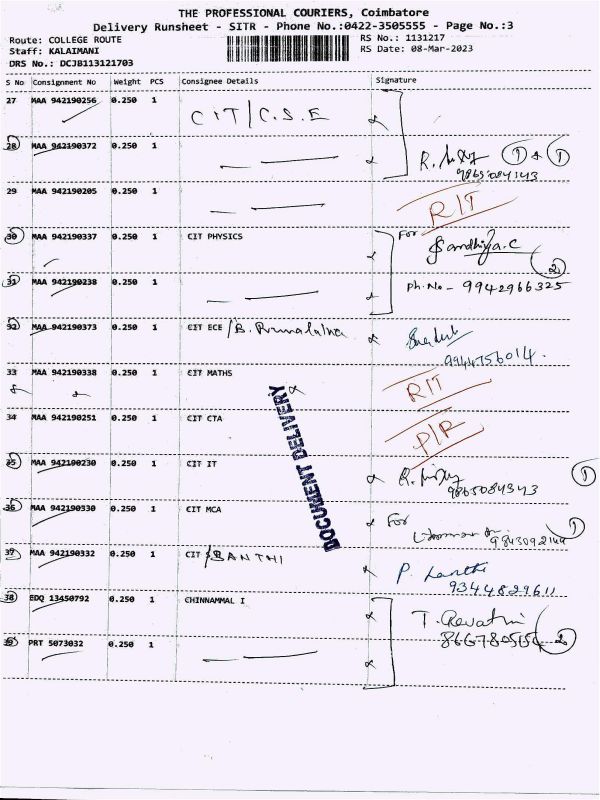 THE PROFESSIONAL COURIERS, Coimbatore
Delivery Runsheet - SITR - Phone No.:0422-3505555 - Page No.:3
Route: COLLEGE ROUTE
RS No.: 1131217
Staff: KALAIMANI
RS Date: 08-Mar-2023
DRS No.: DCJB113121703
S No Consignment No Weight PCS Consignee Details Signature
27 MAA 942190256 0.250 1 CIT/C.S.E
28 MAA 942190372 0.250 1 ① & ①
9865084343
29 MAA 942190205 0.250 1 R/T
30 MAA 942190337 0.250 1 CIT PHYSICS For Sandhiya.C
②
31 MAA 942190238 0.250 1 Ph.No - 9942966325
32 MAA 942190373 0.250 1 CIT ECE
9944756014.
33 MAA 942190338 0.250 1 CIT MATHS R/T
34 MAA 942190251 0.250 1 CIT CTA P/R
DOCUMENT DELIVERY
35 MAA 942190230 0.250 1 CIT IT ①
9865084343
36 MAA 942190330 0.250 1 CIT MCA For ①
37 MAA 942190332 0.250 1 CIT /BANTHI
9344829611
38 EDQ 13450792 0.250 1 CHINNAMMAL I T. Revathi
39 PRT 5073032 0.250 1 ②